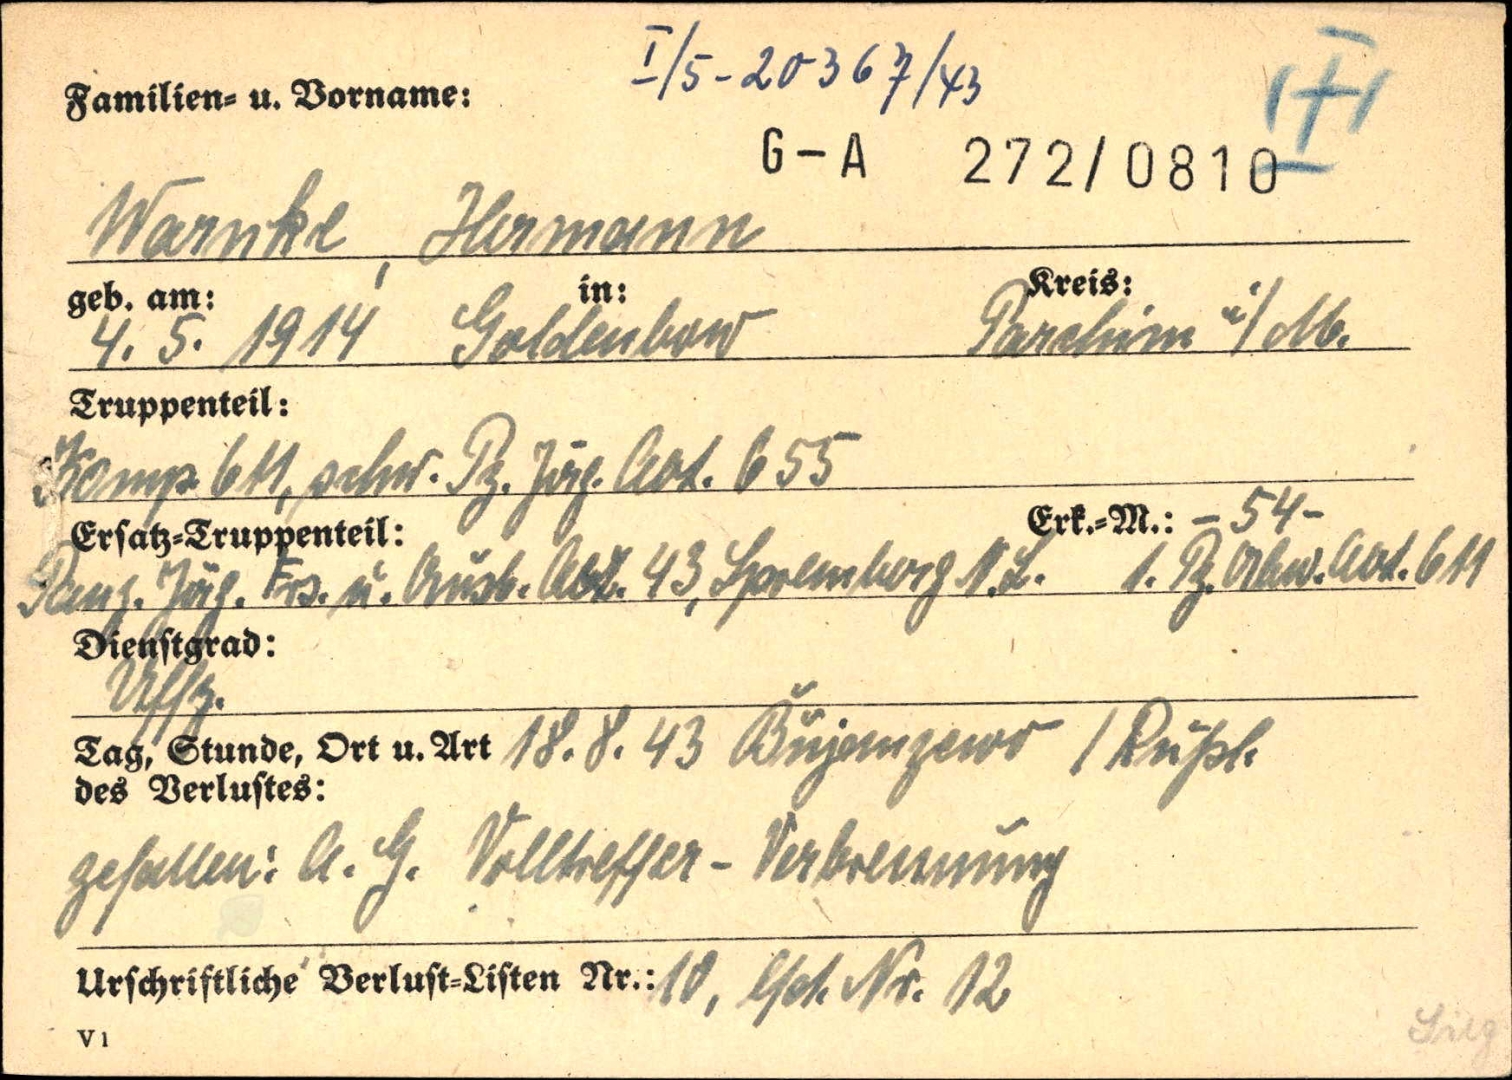 I/5-20367/43
Familien- u. Vorname:
G-A 272/0810
Warnke, Hermann
geb. am: in: Kreis:
4. 5. 1914 Goldenbow Parchim i/Mb.
Truppenteil:
Komp. 611, schw. Pz. Jäg. Abt. 655
Ersatz-Truppenteil: Erk.-M.: -54-
Panz. Jäg. Ers. u. Ausb. Abt. 43, Spremberg N.L. 1. Pz. Abw. Abt. 611
Dienstgrad:
Uffz.
Tag, Stunde, Ort u. Art 18. 8. 43 Bujanzewo / Rußl.
des Verlustes:
gefallen: A. G. Volltreffer - Verbrennung
Urschriftliche Verlust-Listen Nr.: 10, lfd. Nr. 12
V 1